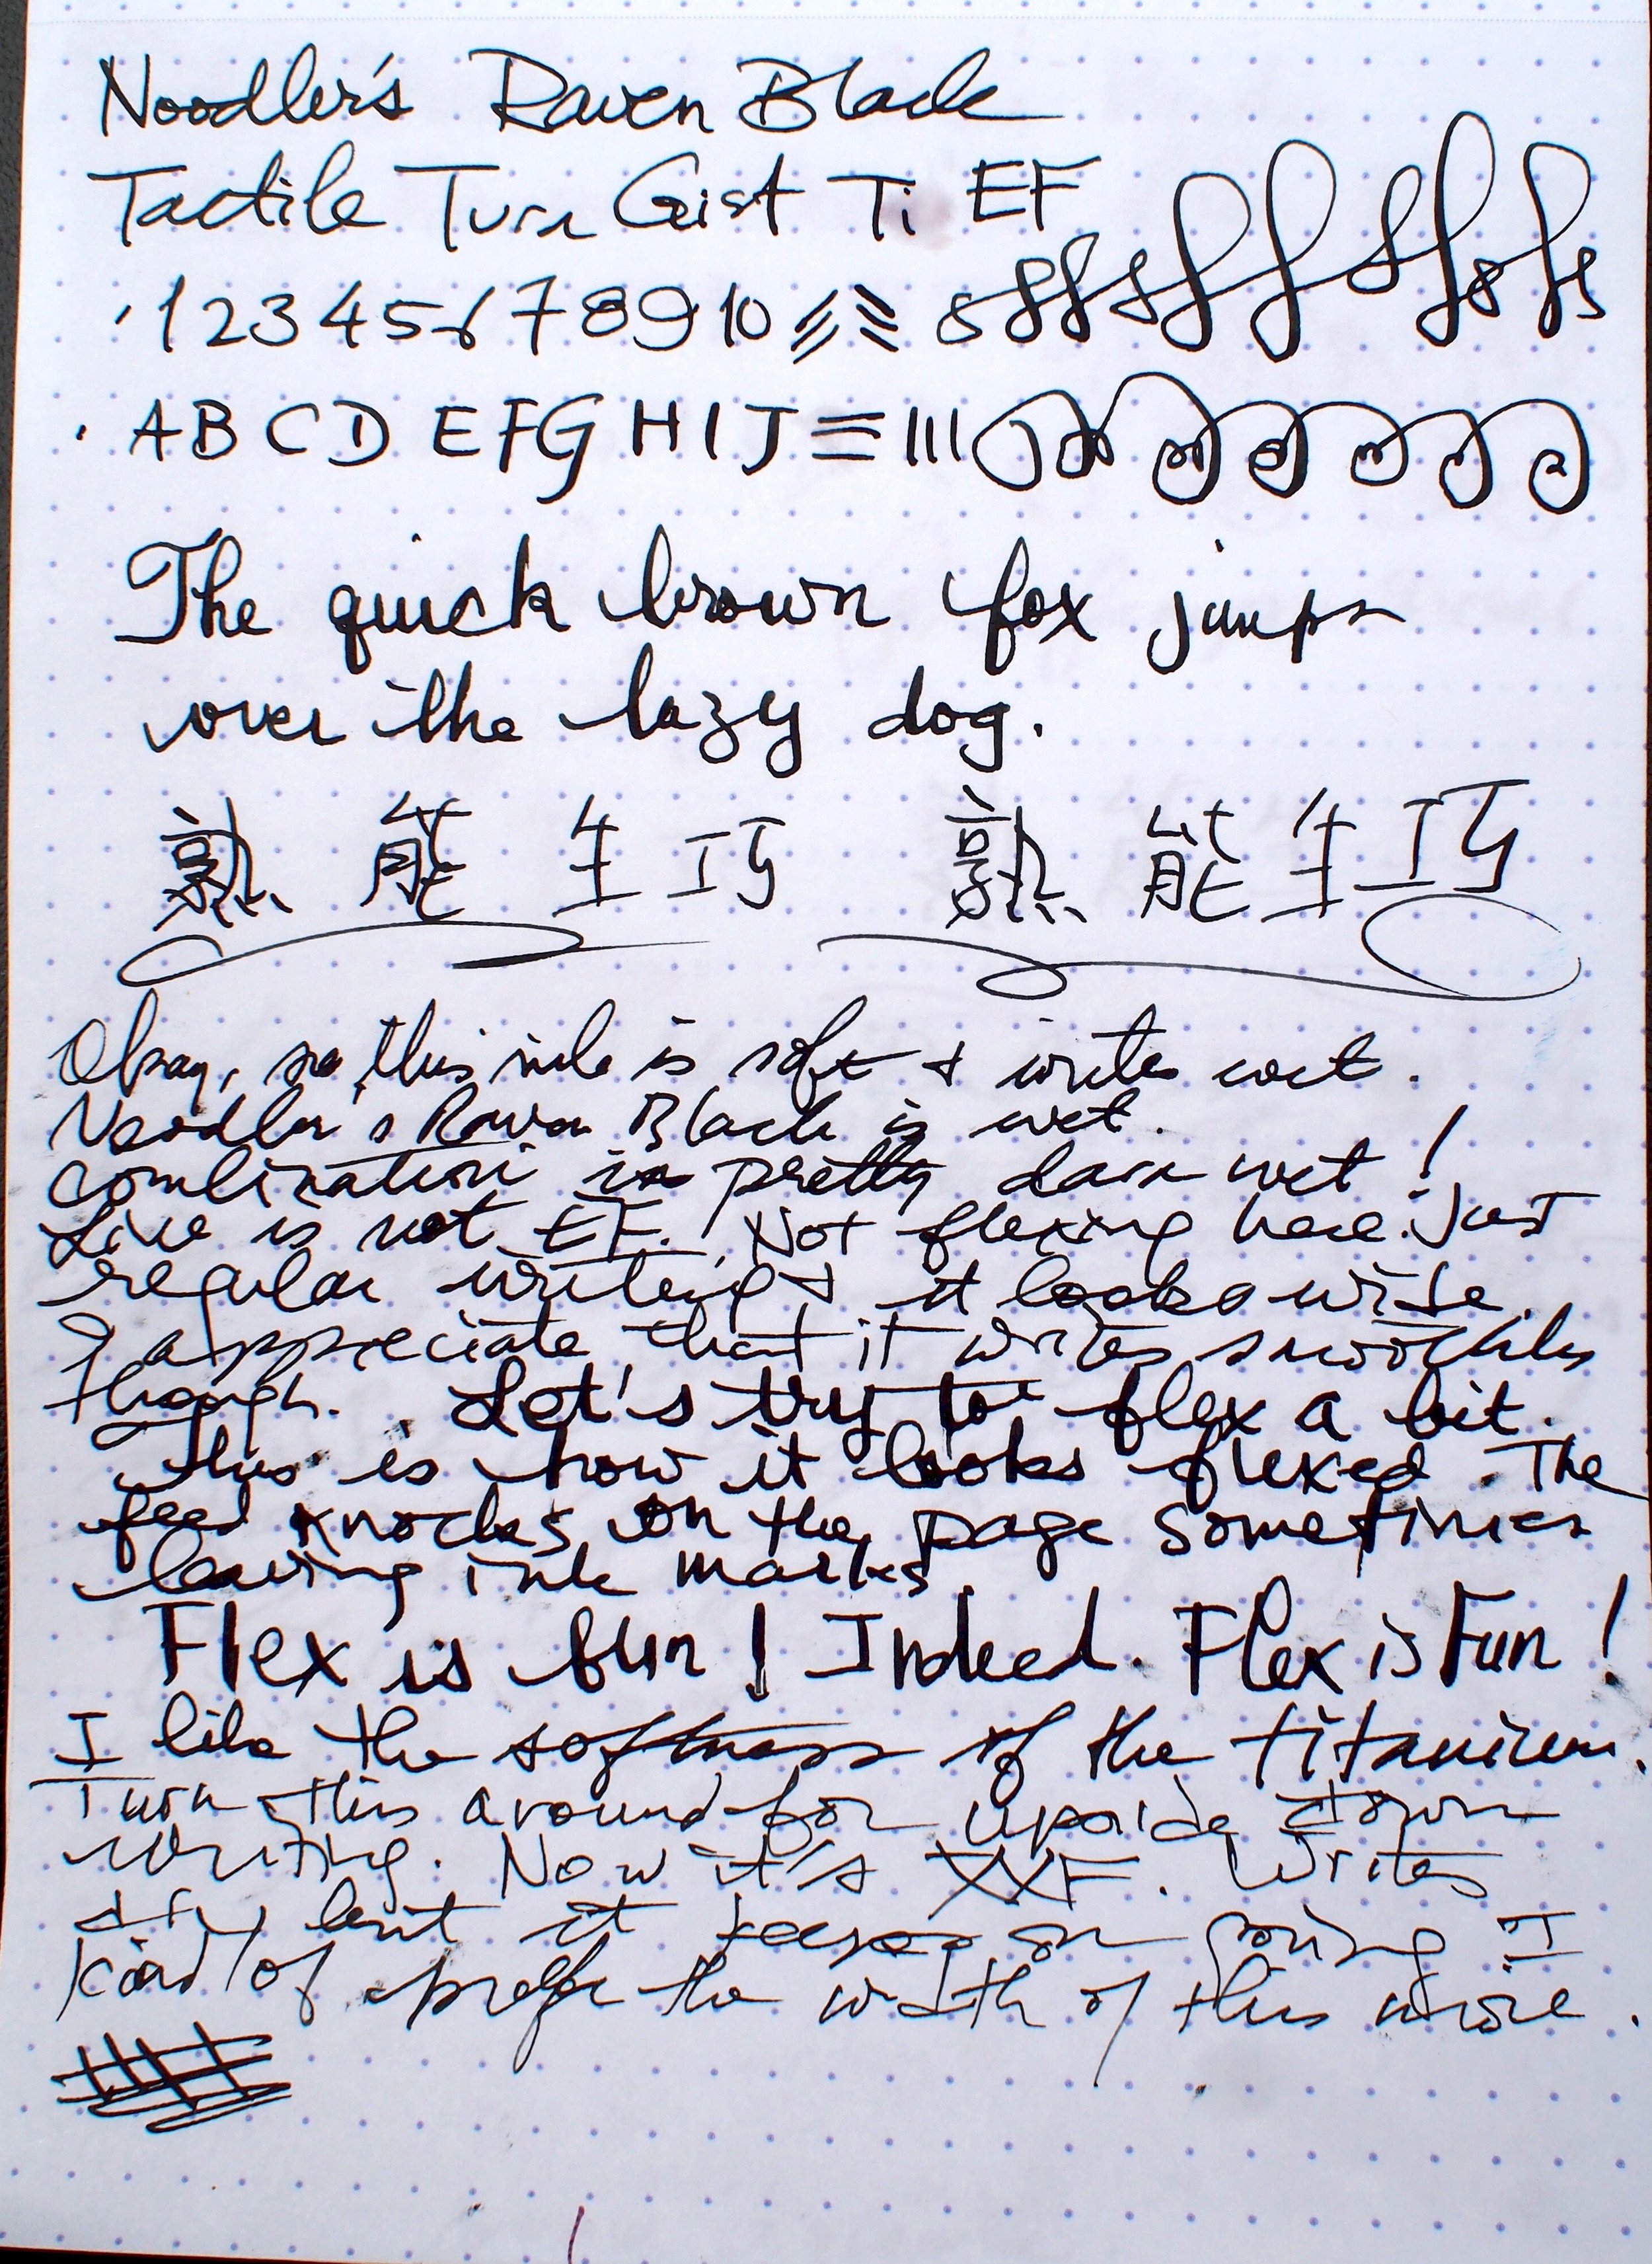 Noodler's Raven Black
Tactile Turn Gist Ti EF
1 2 3 4 5 6 7 8 9 10
A B C D E F G H I J
The quick brown fox jumps
over the lazy dog.
熟能生巧 熟能生巧
Okay, so this nib is soft & writes wet.
Noodler's Raven Black is wet.
Combination is pretty darn wet!
Line is not EF. Not flexing here. Just
regular writing & it looks wide.
I appreciate that it writes smoothly
though. Let's try to flex a bit.
This is how it looks flexed. The
feed knocks on the page sometimes
leaving ink marks.
Flex is fun! Indeed. Flex is Fun!
I like the softness of the titanium.
Turn this around for upside down
writing. Now it's XXF. Writes
dry but it keeps on going I
kind of prefer the width of this more.